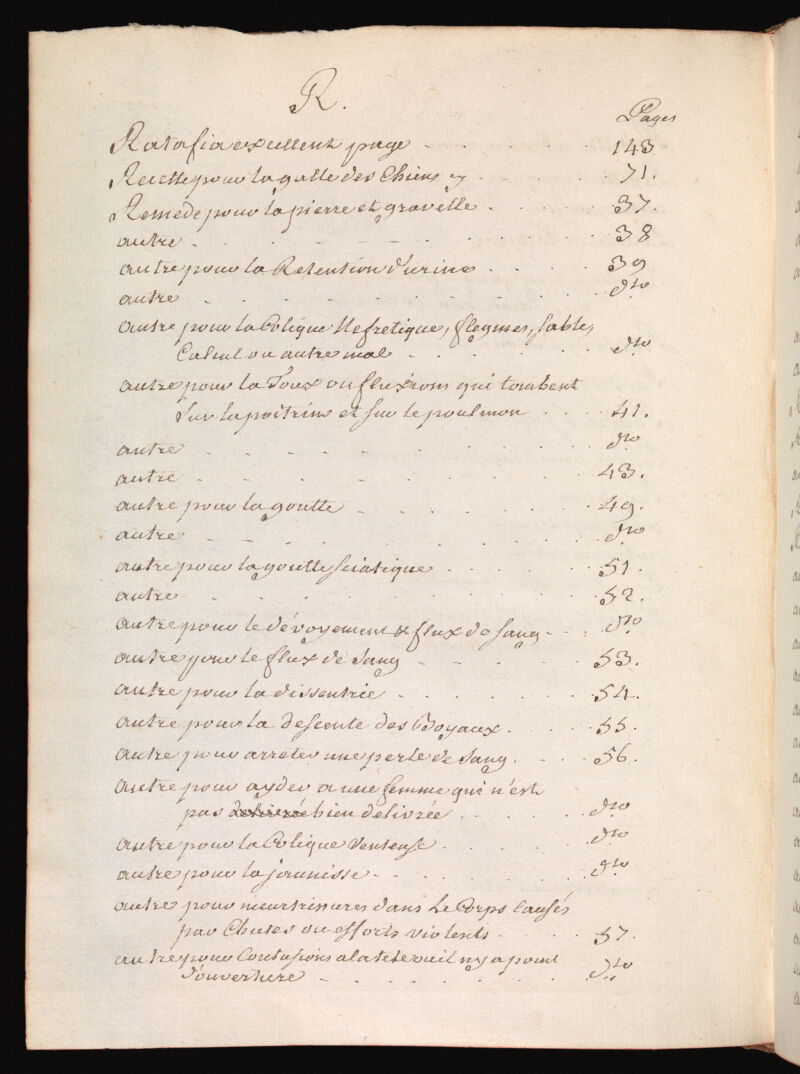 R.
Pages
Ratafia excellent page 143
Recette pour la galle des Chiens 71.
Remede pour la pierre et gravelle 37.
autre 38
autre pour la Retention d'urine 39
autre dto
autre pour la Colique Nefretique, flegmes, sable,
Calcul ou autre mal dto
autre pour la Toux ou fluxions qui tombent
Sur la poitrine et sur le poulmon 41.
autre dto
autre 43.
autre pour la goutte 49.
autre dto
autre pour la goutte sciatique 51.
autre 52.
autre pour le dévoyement & flux de sang dto
autre pour le flux de sang 53.
autre pour la dissentrie 54.
autre pour la descente des Boyaux 55.
autre pour arreter une perte de sang 56.
autre pour ayder a une femme qui n'est
pas bien delivrée dto
autre pour la Colique Venteuse dto
autre pour la jaunisse dto
autre pour meurtrissures dans le Corps Causés
par Chutes ou efforts violents 57.
autre pour Contusions a la tete ou il n'y a point
d'ouverture dto